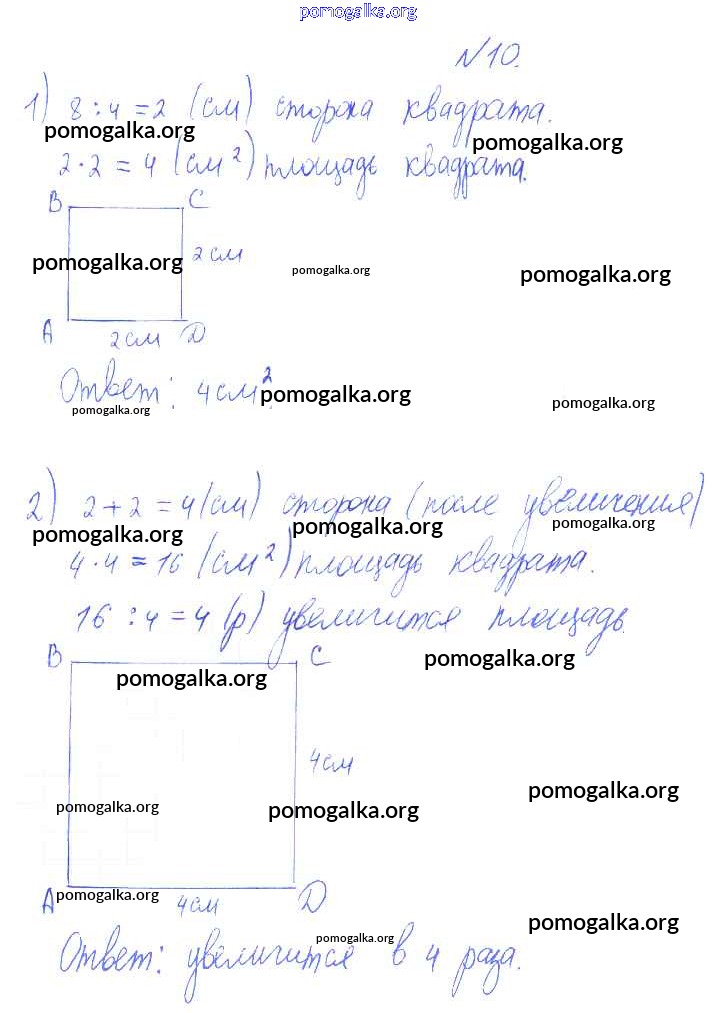 pomogalka.org
№10.
1) 8 : 4 = 2 (см) сторона квадрата.
pomogalka.org pomogalka.org
2 · 2 = 4 (см²) площадь квадрата.
B C
pomogalka.org 2 см pomogalka.org pomogalka.org
A 2 см D
Ответ: 4 см².
pomogalka.org
pomogalka.org pomogalka.org
2) 2 + 2 = 4 (см) сторона (после увеличения)
pomogalka.org pomogalka.org pomogalka.org
4 · 4 = 16 (см²) площадь квадрата.
16 : 4 = 4 (р) увеличится площадь.
B C
pomogalka.org pomogalka.org
4 см
pomogalka.org pomogalka.org pomogalka.org
A 4 см D
pomogalka.org
pomogalka.org pomogalka.org
Ответ: увеличится в 4 раза.